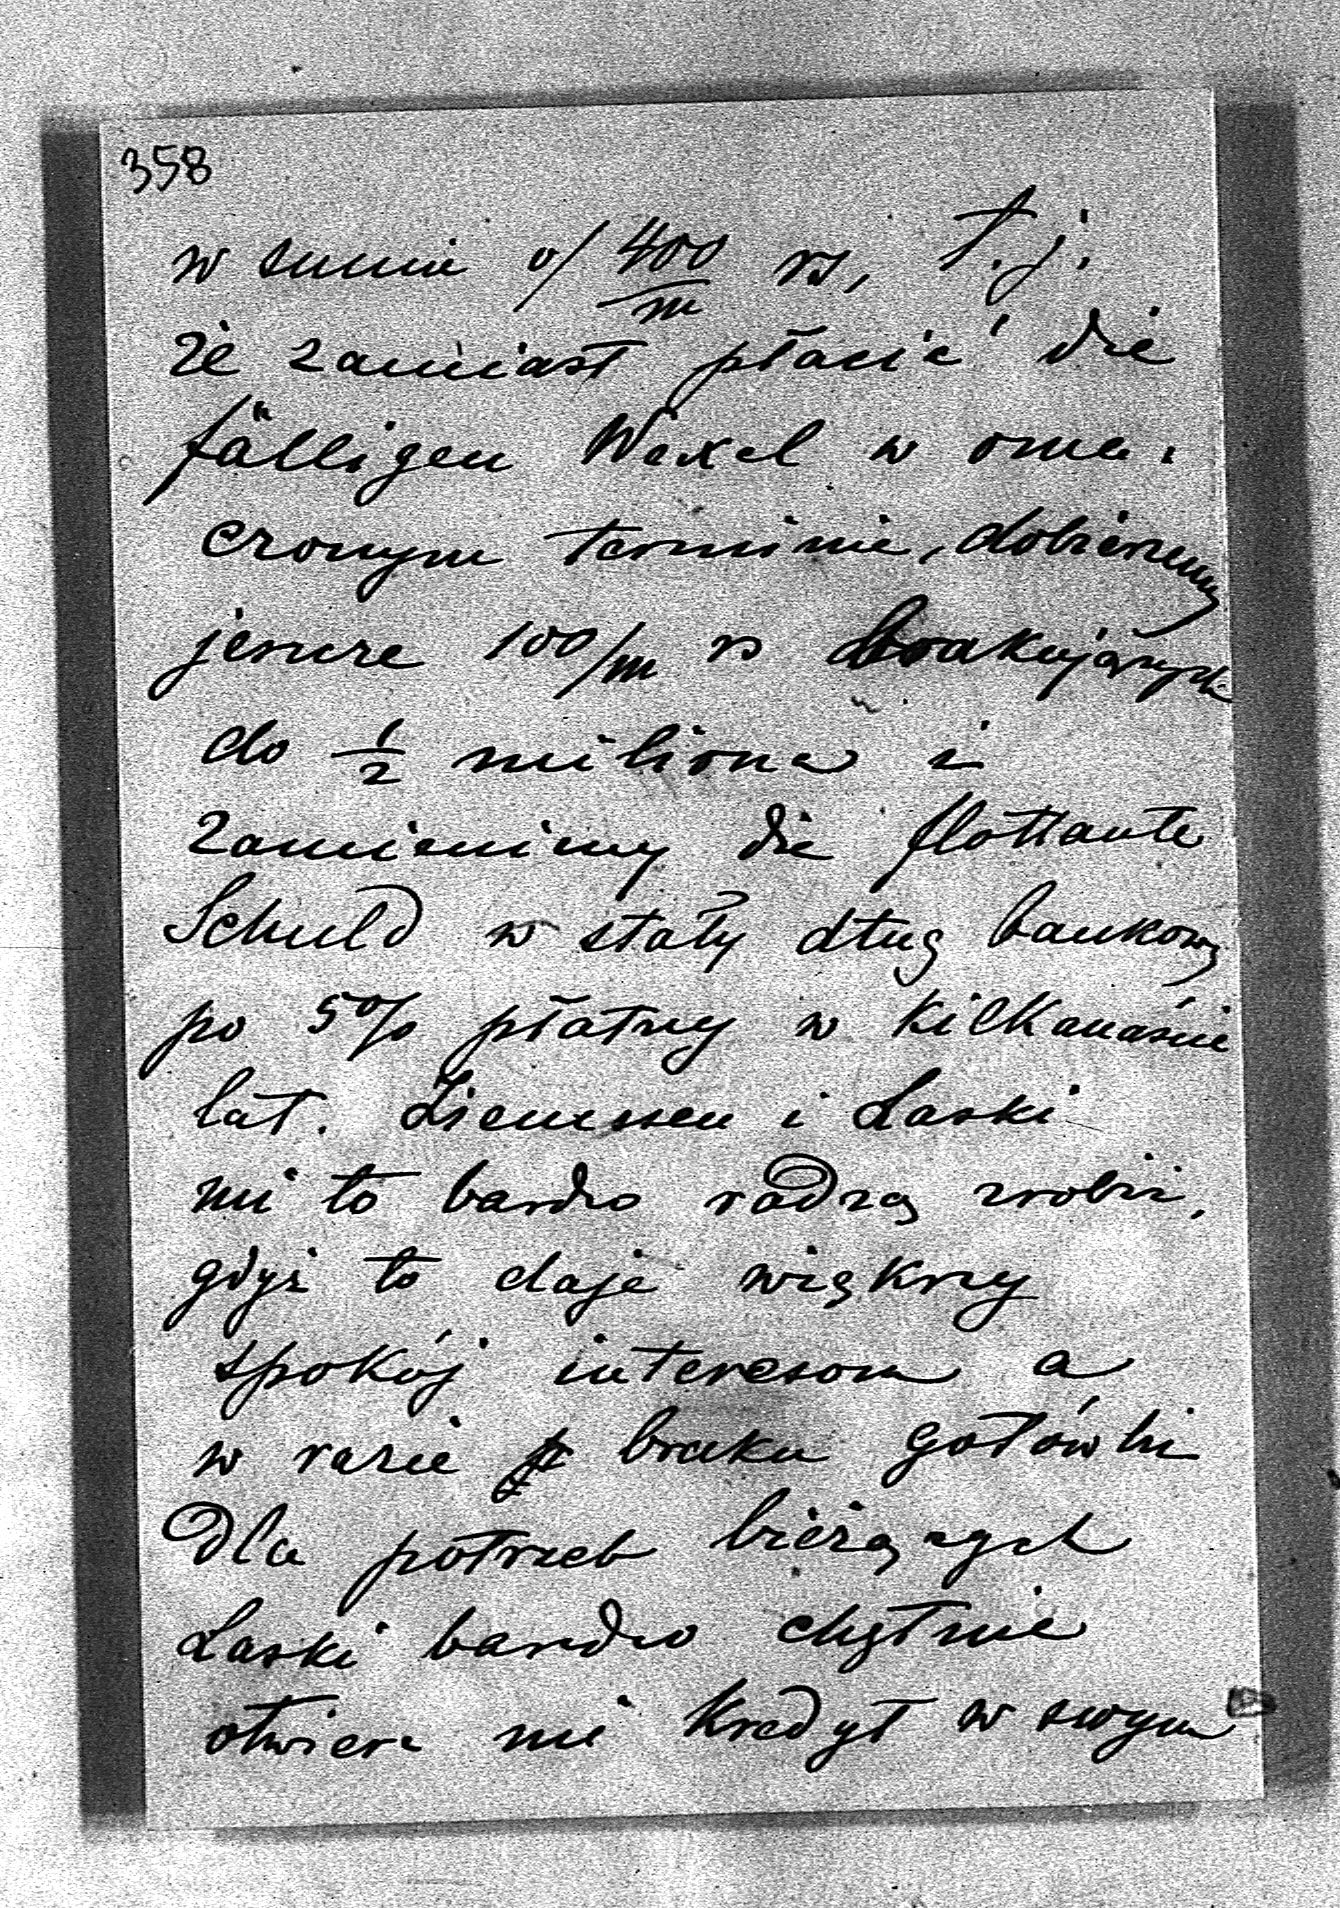 358
w sumie o/ 400/m rs, t.j.
że zamiast płacić die
fälligen Wexel w ozna-
czonym terminie, dobierzemy
jeszcze 100/m rs brakujących
do 1/2 miliona i
zamienimy die flottante
Schuld w stały dług bankowy
po 5% płatny w kilkanaście
lat. Ziemssen i Laski
mi to bardzo radzą zrobić,
gdyż to daje większy
spokój interesom a
w razie braku gotówki
dla potrzeb bieżących
Laski bardzo chętnie
otwiera mi kredyt w swym